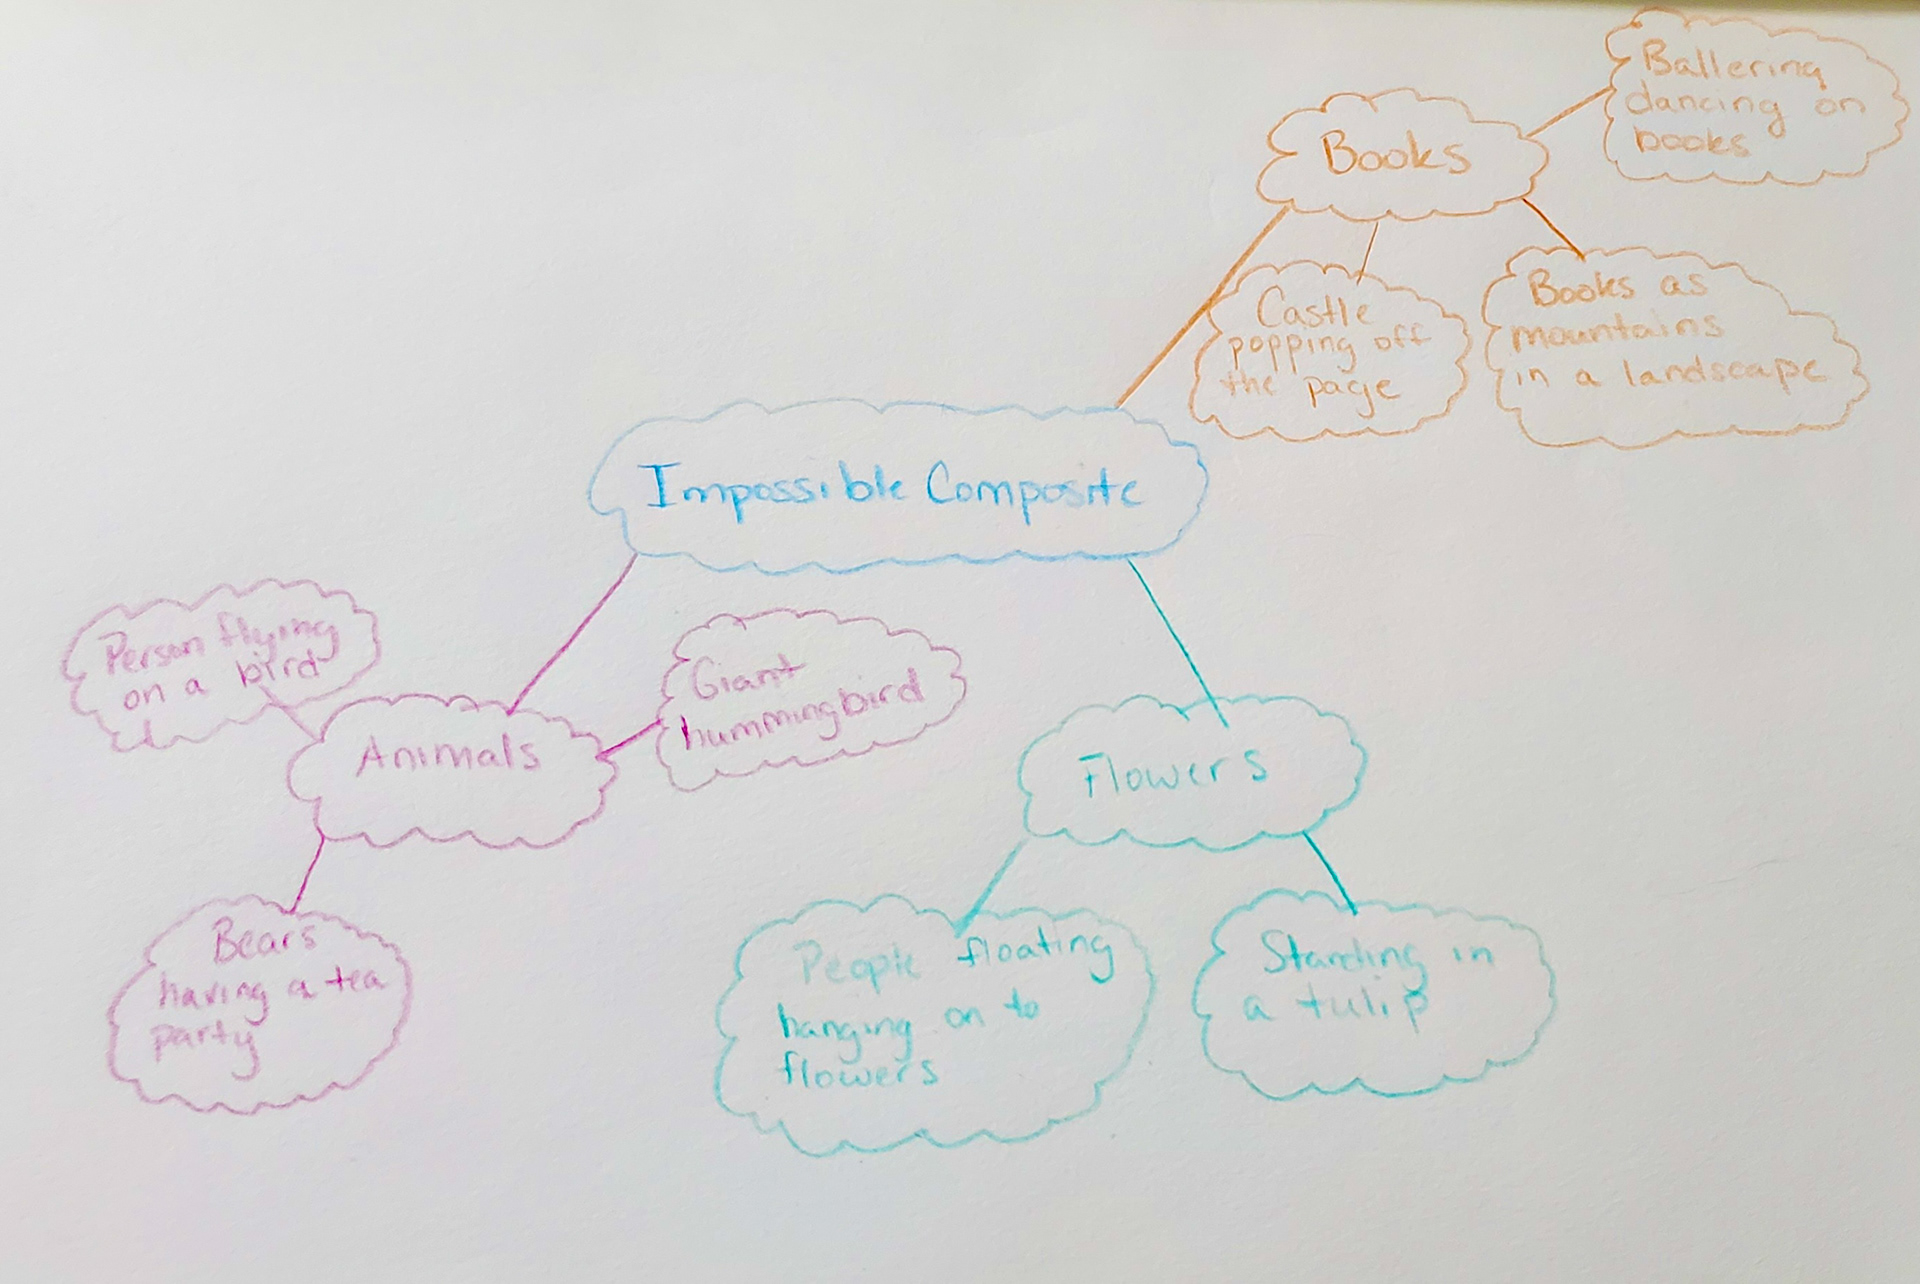 Ballerina
dancing on
books
Books
Castle
popping off
the page
Books as
mountains
in a landscape
Impossible Composite
Person flying
on a bird
Giant
hummingbird
Animals
Flowers
Bears
having a tea
party
People floating
hanging on to
flowers
Standing in
a tulip